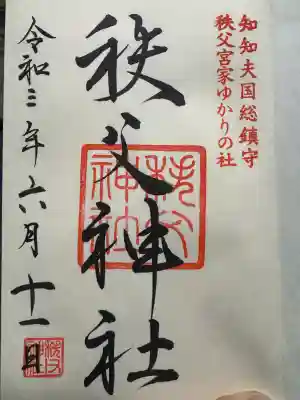 知知夫国総鎮守
秩父宮家ゆかりの社
秩父神社
令和三年六月十一日
秩父神社